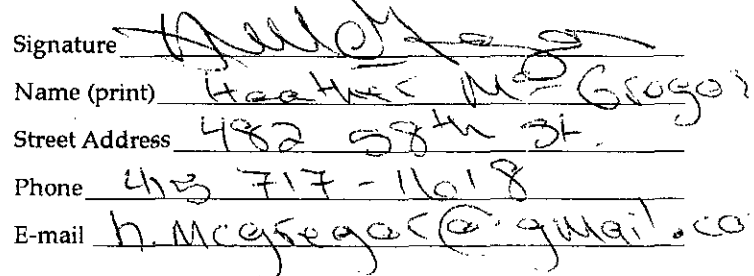 Signature
Name (print) Heather McGregor
Street Address 482 58th St.
Phone
E-mail h.mcgregor@gmail.co